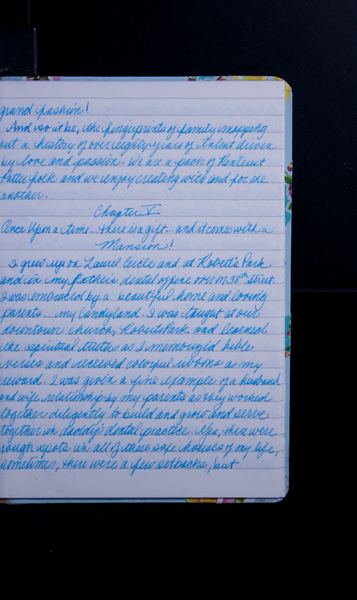 grand fashion!
And so it be, the fingerprints of family mapping
out a history of over eighty years of talent driven
by love and passion. We are a pack of Pinterest
Potter folk and we enjoy creating with and for one
another.
Chapter V
Once Upon a time... there is a gift... and it comes with a
Mansion!
I grew up on Laurel Circle and at Roberts Park
and in my father's dental office on 38th Street.
I was embraced by a beautiful home and loving
parents... my Candyland. I was taught at our
downtown church, Roberts Park and learned
the spiritual truths as I memorized bible
verses and received colorful ribbons as my
reward. I was given a fine example of a husband
and wife relationship by my parents as they worked
together diligently to build and grow and serve
together in daddy's dental practice. Yes, there were
rough spots in all of these safe houses of my life,
sometimes, there were a few setbacks, but